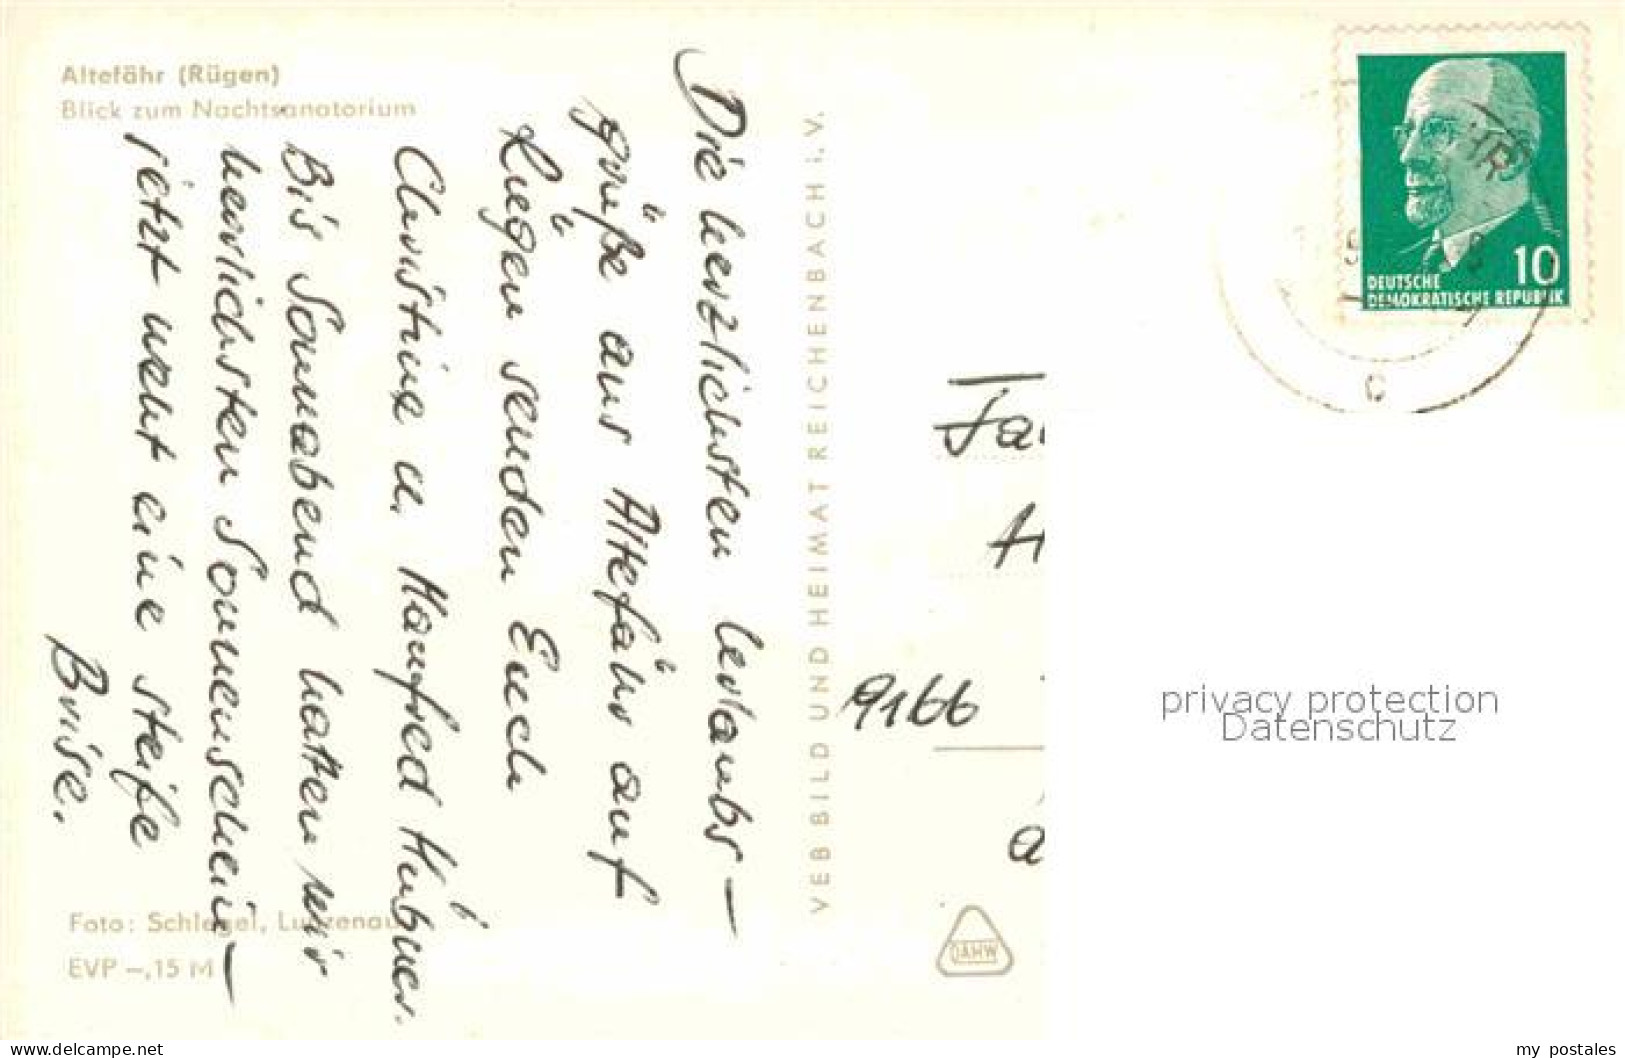 Altefähr (Rügen)
Blick zum Nachtsanatorium
Die herzlichsten Urlaubs-
grüße aus Altefähr auf
Rügen senden Euch
Christine u. Manfred Hübner.
Bis Sonnabend hatten wir
herrlichsten Sonnenschein -
jetzt weht eine steife
Brise.
Foto: Schlegel, Lunzenau
EVP -,15 M
VEB BILD UND HEIMAT REICHENBACH i. V.
10
DEUTSCHE
DEMOKRATISCHE REPUBLIK
Fa
9166
a
privacy protection
Datenschutz
www.delcampe.net
my_postales